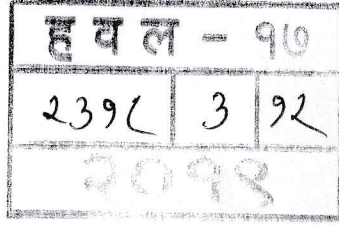 हवल - १७
2३१८ ३ १२
२०१९